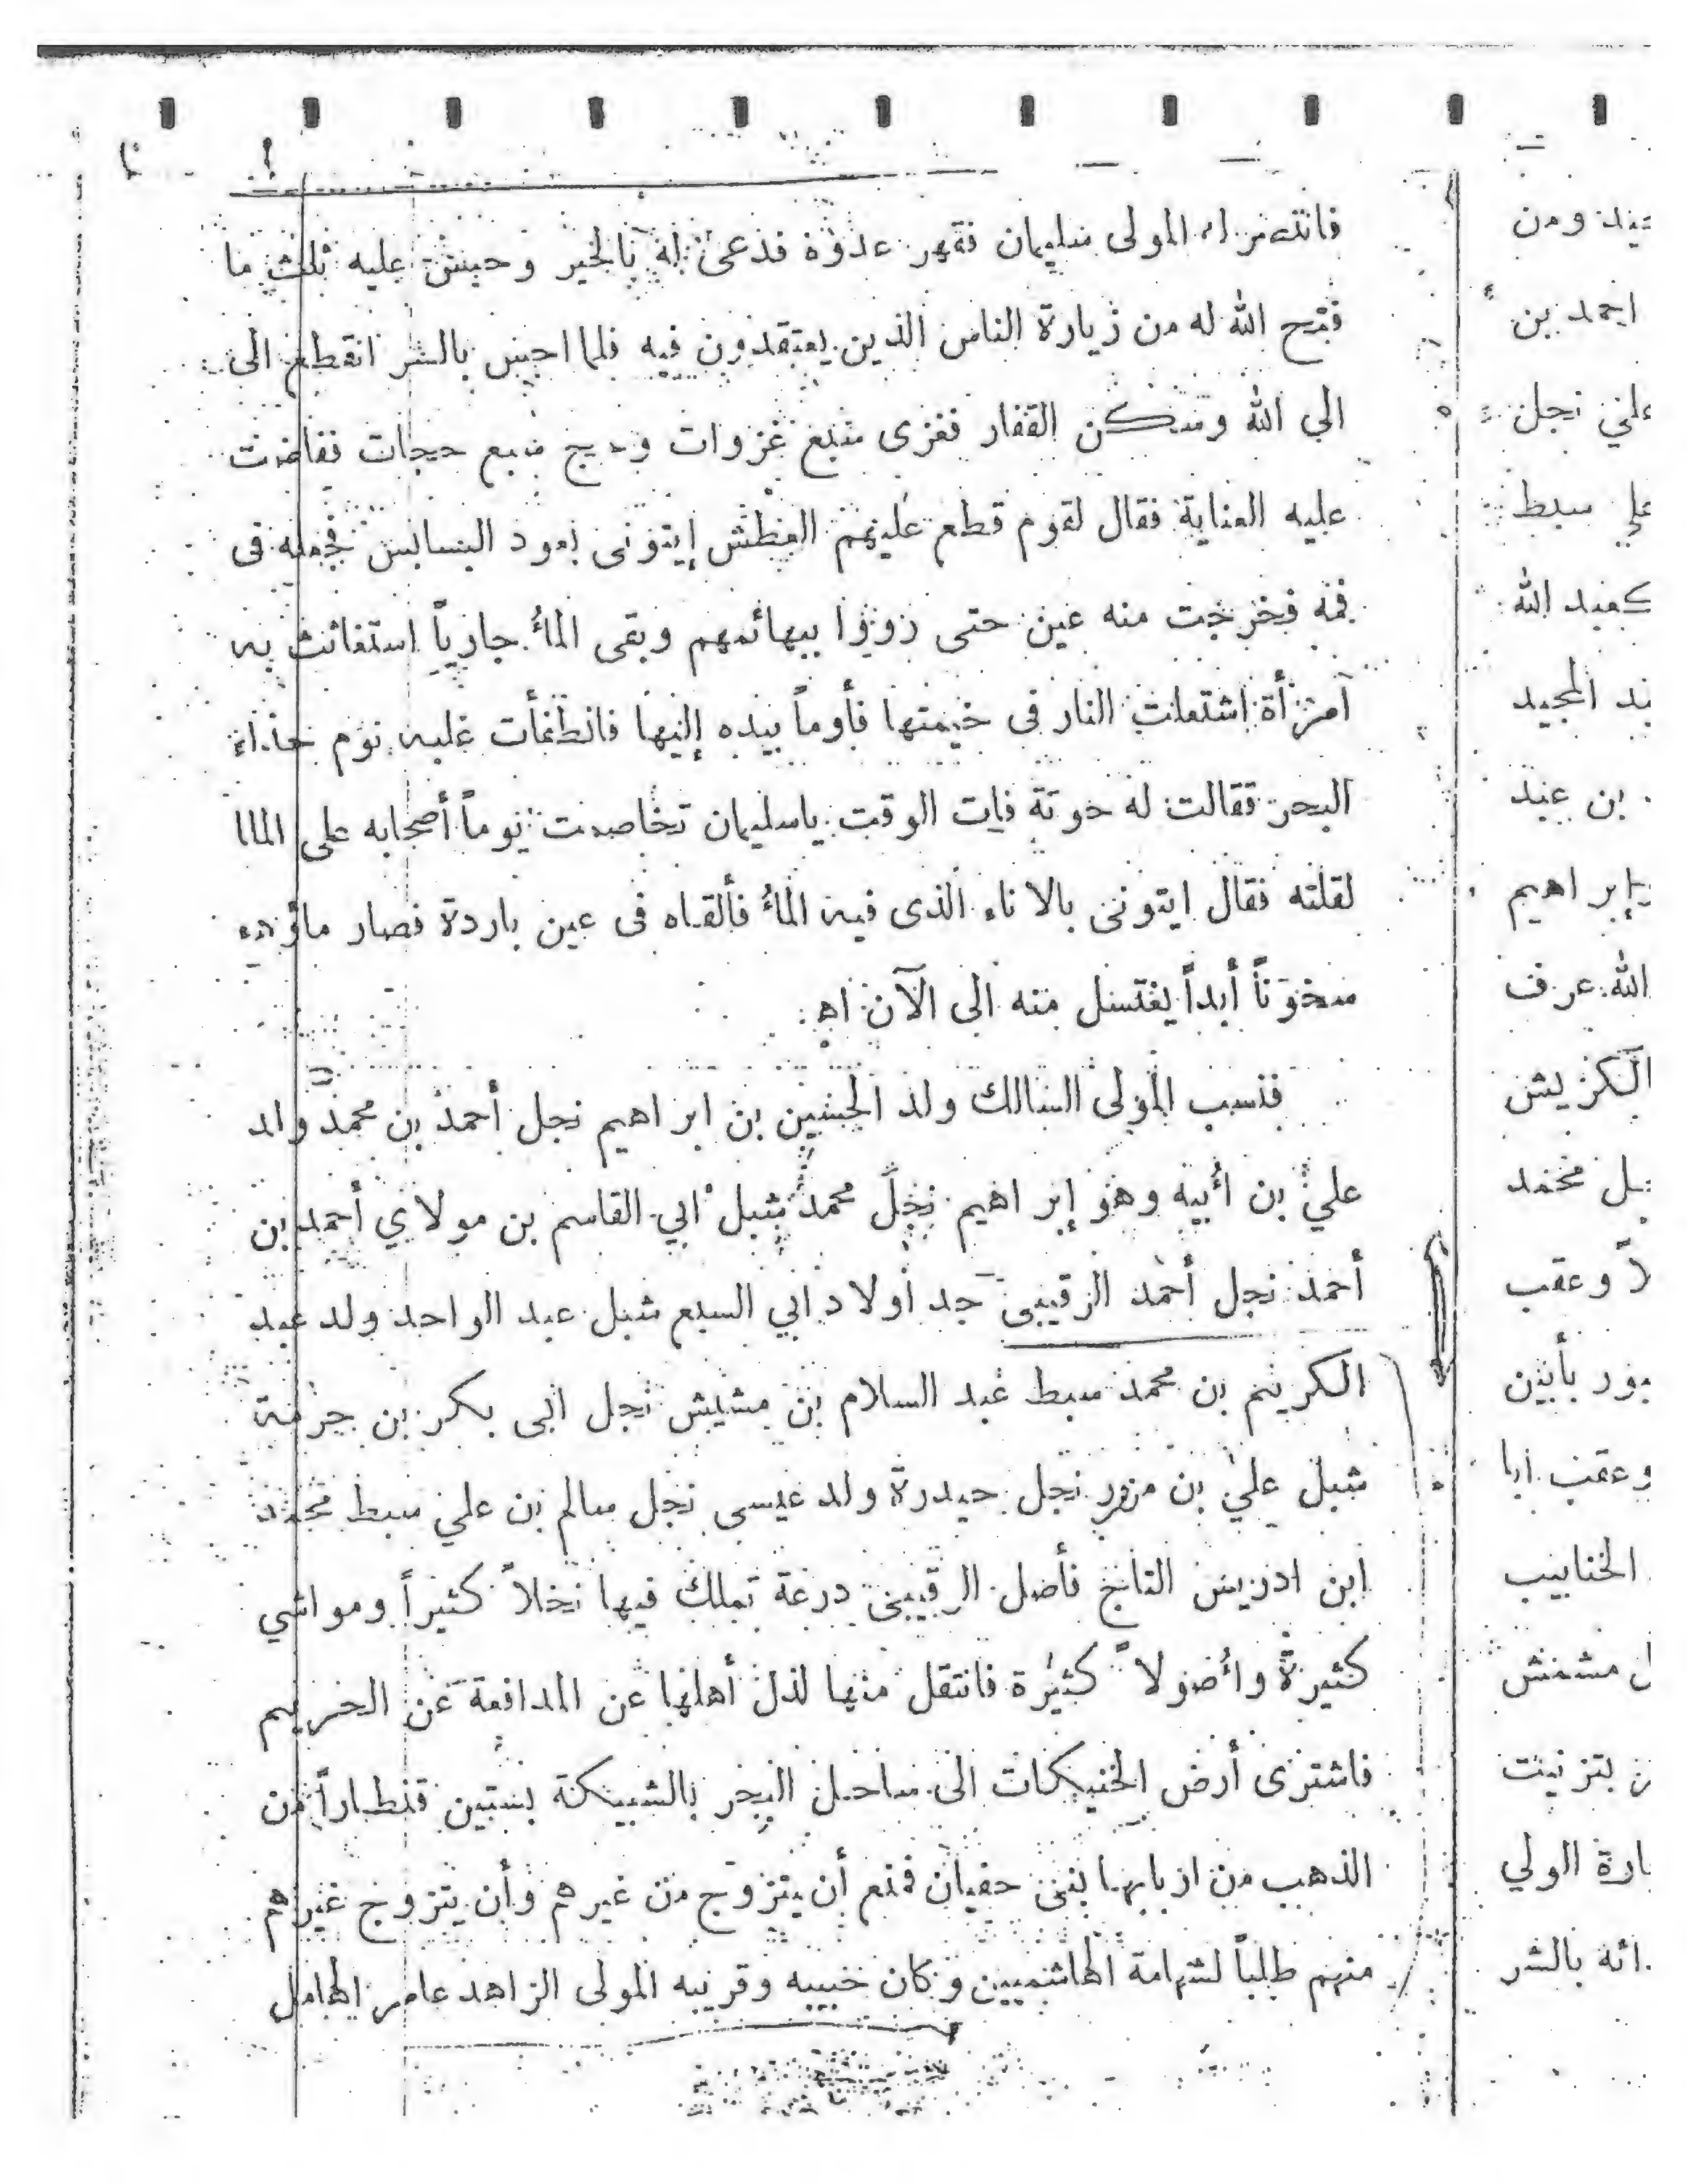 فانتصر له المولى سليمان فقهر عدوه فدعى له بالخير وحبس عليه ثلث ما
فتح الله له من زيارة الناس الذين يعتقدون فيه فلما احس بالشر انقطع الى
الي الله وسكن القفار فغزى سبع غزوات وحج سبع حجات ففاضت
عليه العناية فقال لقوم قطع عليهم العطش إيتونى بعود البسابس فجعله فى
فمه فخرجت منه عين حتى رووا ببهائمهم وبقى الماءُ جارياً استغاثت به
آمرأة اشتعلت النار فى خيمتها فأومأ بيده إليها فانطفأت عليه نوم حذاء
البحر فقالت له حوتة فات الوقت ياسليمان تخاصمت يوماً أصحابه على الما
لقلته فقال ايتونى بالاناء الذى فيه الماءُ فألقاه فى عين باردة فصار ماؤها
سخوناً أبداً يغتسل منه الى الآن اهـ.
فنسب المولى السالك ولد الحسين بن ابراهيم نجل أحمد بن محمد والد
علي بن أبيه وهو إبراهيم نجل محمد شبل ابي القاسم بن مولاي أحمد بن
أحمد نجل أحمد الرقيبى جد أولاد ابي السبع شبل عبد الواحد ولد عبد
الكريم بن محمد سبط عبد السلام بن مشيش نجل ابى بكر بن حرمة
شبل علي بن مزور نجل حيدرة ولد عيسى نجل سالم بن علي سبط محمد
ابن ادريس التاج فأصل الرقيبى درعة تملك فيها نخلاً كثيراً ومواشي
كثيرةً وأصولاً كثيرة فانتقل منها لذل أهلها عن المدافعة عن الحريم
فاشترى أرض الخنيكات الى ساحل البحر بالشبيكة بستين قنطاراً من
الذهب من اربابها بنى حفيان فمنع أن يتزوج من غيرهم وأن يتزوج غيرهم
منهم طلباً لشهامة الهاشميين وكان حبيبه وقرنيه المولى الزاهد عامر الهامل
ومن
احمد بن
علي نجل
علي سبط
كعبد الله
المجيد
بن عبد
إبراهيم
الله عرف
الكزيش
محمد
وعقب
وعقب ابا
الخنابيب
بتزنيت
الولي
بالشر